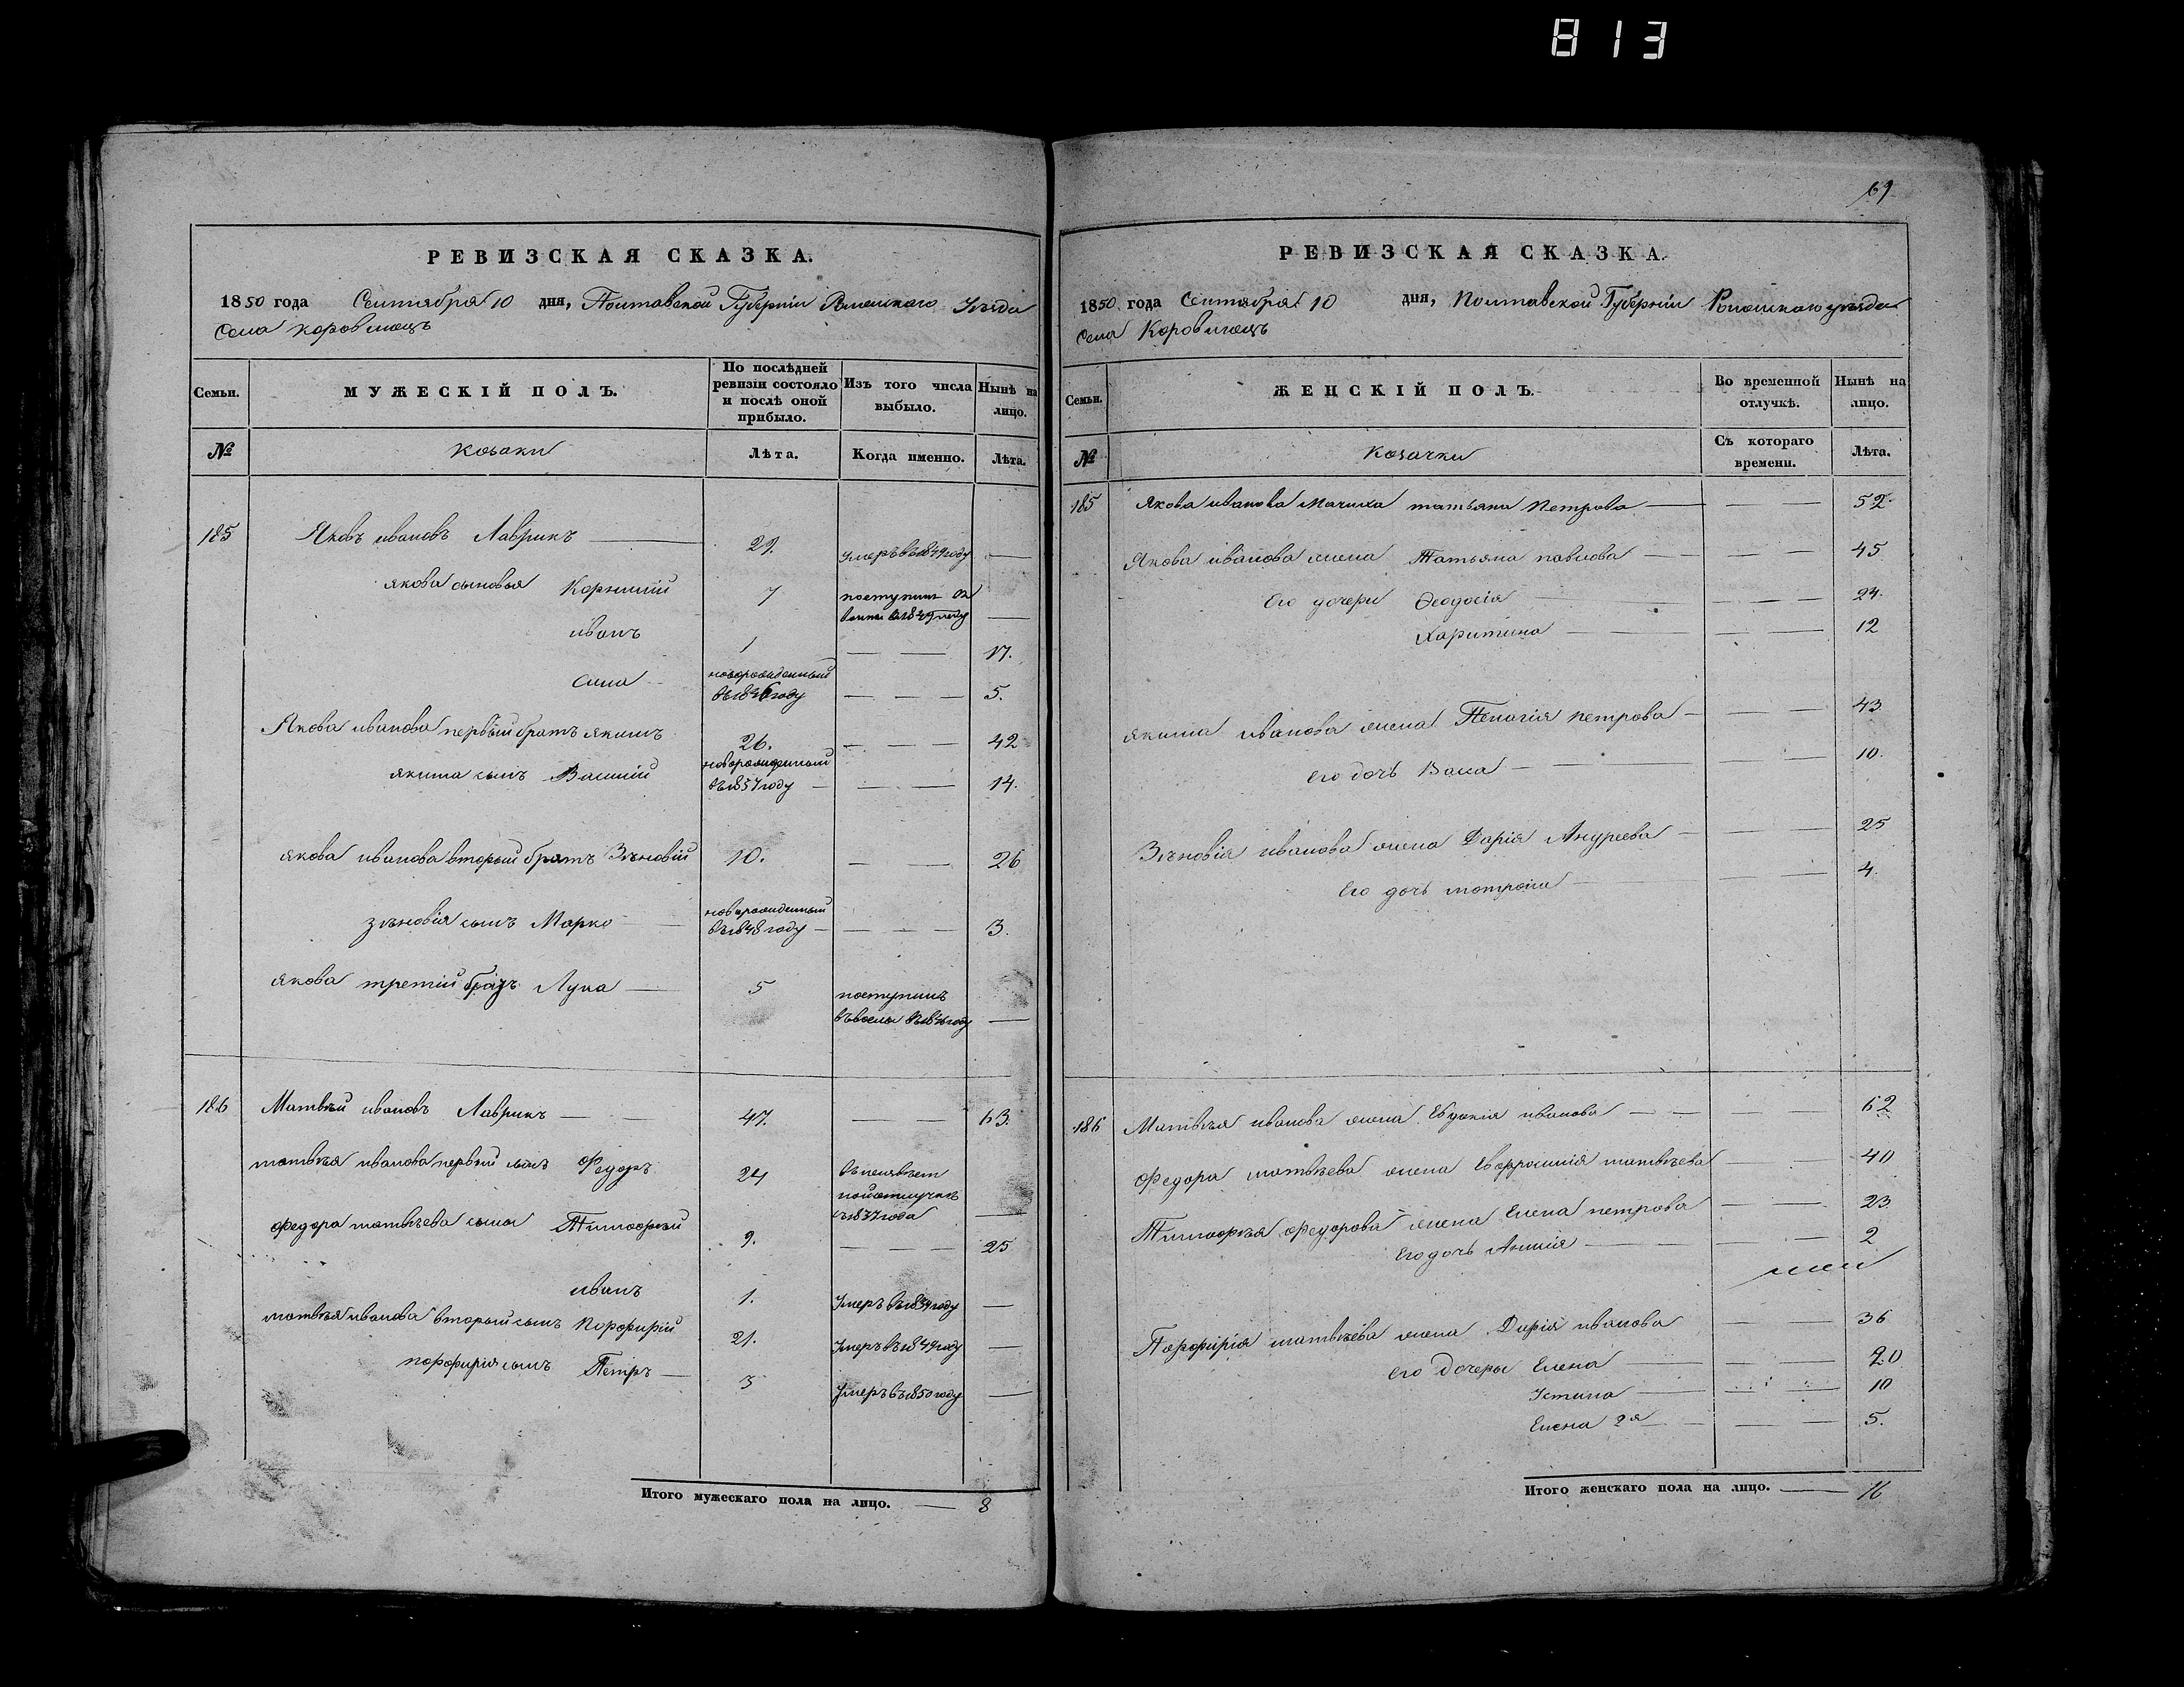 813
РЕВИЗСКАЯ СКАЗКА.
1850 года Сентября 10 дня, Полтавской Губернiи Роменского Уезда
Села Коровинецъ
Семьи.
МУЖЕСКІЙ ПОЛЪ.
По послѣдней ревизіи состояло и послѣ оной прибыло.
Изъ того числа выбыло.
Нынѣ на лицо.
№
Козаки
Лѣта.
Когда именно.
Лѣта.
185 Яковъ ивановъ Лаврикъ 29. Умеръ в 1849 году
якова сыновья Корнилiй 7 поступил в 1849 году
иванъ 1 17.
новорожденный въ 1846 году 5.
Якова иванова первый братъ якимъ 26. 42
якима сынъ Василiй новорожденный въ 1837 году 14.
якова иванова вторый братъ Зѣновiй 10. 26
зѣновiя сынъ Марко новорожденный въ 1848 году 3.
якова третiй братъ Лука 5 поступилъ въ 1846 году
186 Матвѣй ивановъ Лаврикъ 47. 63.
матвѣя иванова первый сынъ Федоръ 24 съ 1837 года
федора матвѣева сыны Тимофѣй 9. 25
иванъ 1. Умеръ въ 1834 году
матвѣя иванова вторый сынъ Порфирiй 21. Умеръ въ 1849 году
порфирiя сынъ Петръ 3 Умеръ въ 1850 году
Итого мужескаго пола на лицо. 8
69
РЕВИЗСКАЯ СКАЗКА.
1850 года Сентября 10 дня, Полтавской Губернiи Роменского уезда
Села Коровинецъ
Семьи.
ЖЕНСКІЙ ПОЛЪ.
Во временной отлучкѣ.
Нынѣ на лицо.
№
Козачки
Съ котораго времени.
Лѣта.
185 Якова иванова мачиха татьяна Петрова 52.
Якова иванова жена Татьяна павлова 45
Его дочери Феодосiя 24.
Харитина 12
якима иванова жена Пелагiя петрова 43
его дочь Васа 10.
Зѣновiя иванова жена Дарiя Андреева 25
Его дочь мотрона 4.
186 Матвѣя иванова жена Евдокiя иванова 62
Федора матвѣева жена Евфросинiя матвѣева 40
Тимофѣя федорова жена Елена петрова 23.
Его дочь 2
Порфирiя матвѣева жена Дарiя иванова 36
его дочери Елена 20
Устина 10
Елена 2я 5.
Итого женскаго пола на лицо. 16